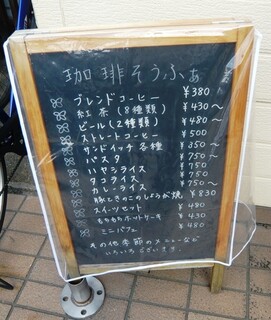 珈琲そうふぁ
ブレンドコーヒー ¥380
紅茶(8種類) ¥430〜
ビール(2種類) ¥480〜
ストレートコーヒー ¥500
サンドイッチ各種 ¥350〜
パスタ ¥750〜
ハヤシライス ¥750
タコライス ¥750
カレーライス ¥750〜
豚ときのこのしょうが焼 ¥830
スイーツセット ¥480
もちもちホットケーキ ¥430
ミニパフェ ¥480
その他季節のメニューなど
いろいろございます。